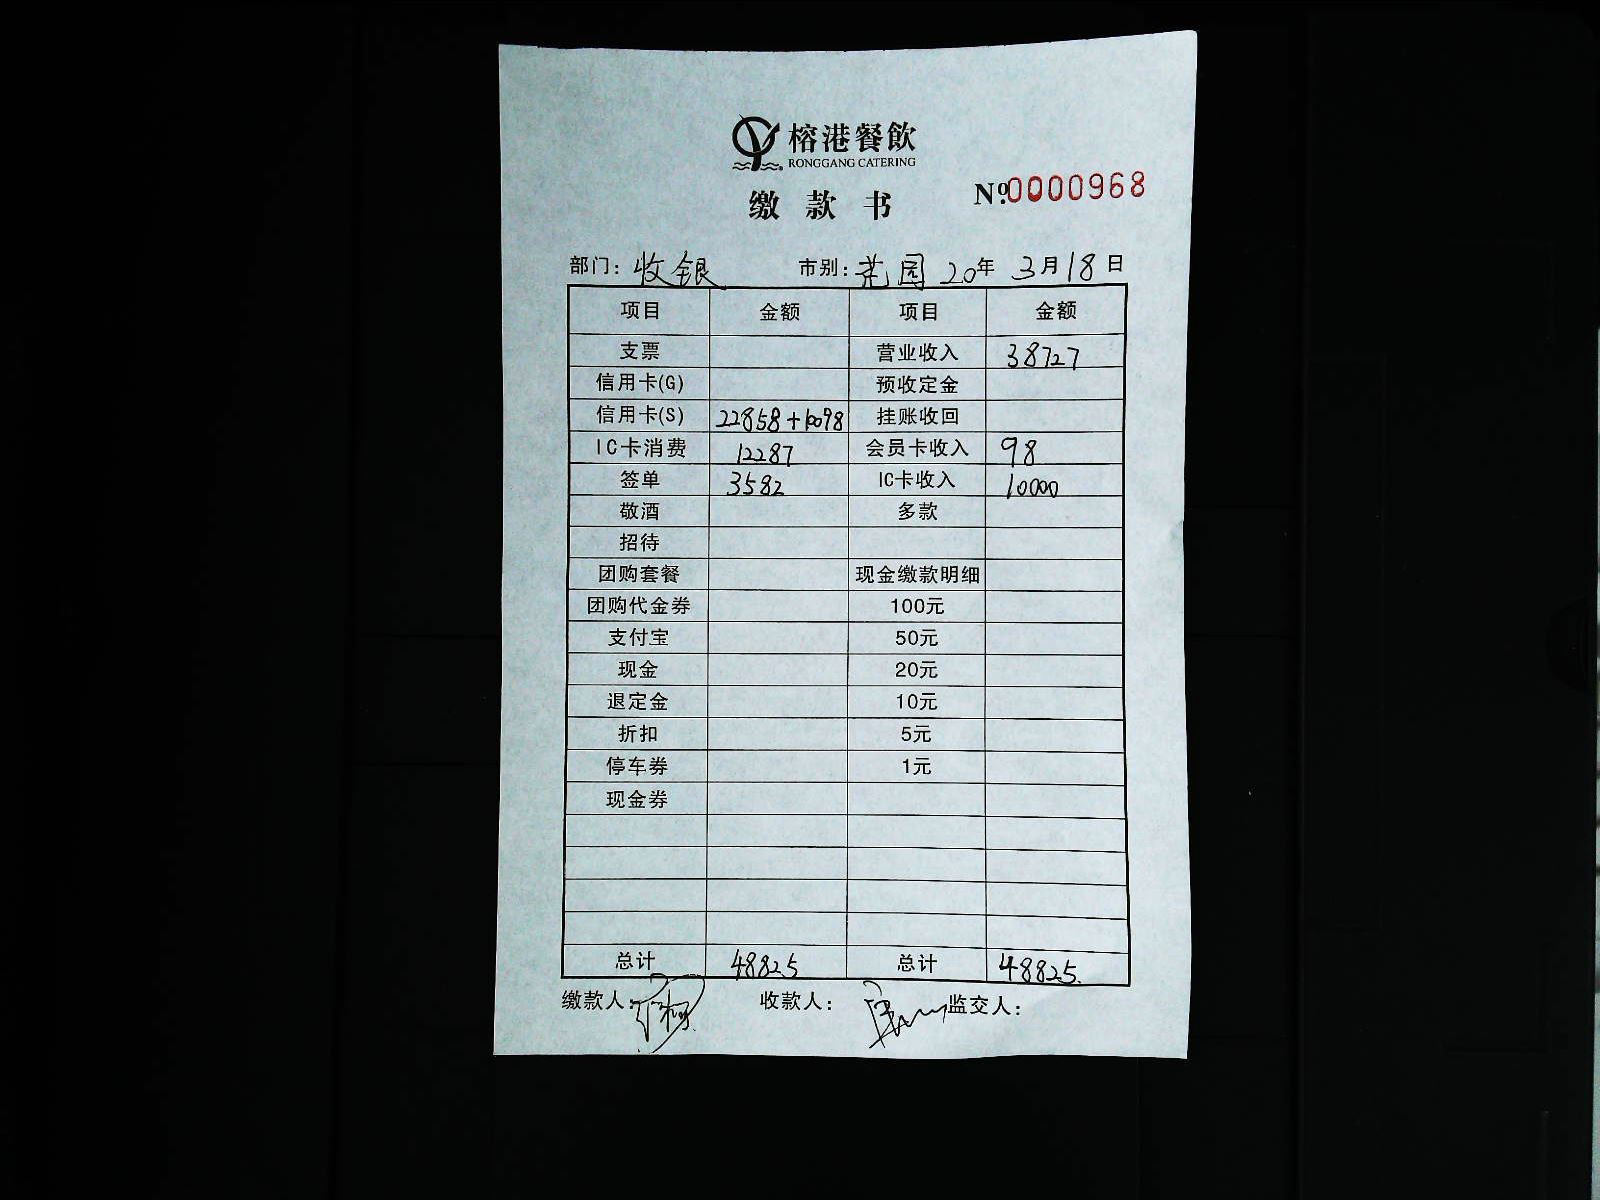 榕港餐飲
RONGGANG CATERING
缴款书 №0000968
部门：收银 市别：菜园 20年 3月18日
项目 金额 项目 金额
支票 营业收入 38727
信用卡(G) 预收定金
信用卡(S) 22858+10098 挂账收回
IC卡消费 12287 会员卡收入 98
签单 3582 IC卡收入 10000
敬酒 多款
招待
团购套餐 现金缴款明细
团购代金券 100元
支付宝 50元
现金 20元
退定金 10元
折扣 5元
停车券 1元
现金券
总计 48825 总计 48825.
缴款人： 收款人： 监交人：